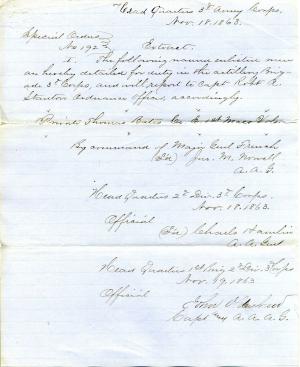 Head Quarters 3d Army Corps,
Nov. 18. 1863.
Special Orders
No 192 Extract.
I. The following named enlisted men
are hereby detailed for duty in the artillery Brig-
ade 3d Corps, and will report to Capt Robt A.
Stanton Ordnance officer, accordingly.
Private Thomas Bates Co. E 1st Mass Vols.
By command of Major Genl French
A. A. G.
Head Quarters 2d Div. 3d Corps.
Nov. 18. 1863.
Official
Charles Hamlin
A. A. Genl
Head Quarters 1st Brig 2d Div. 3d Corps
Nov. 19. 1863
Official
John
Capt A. A. A. G.